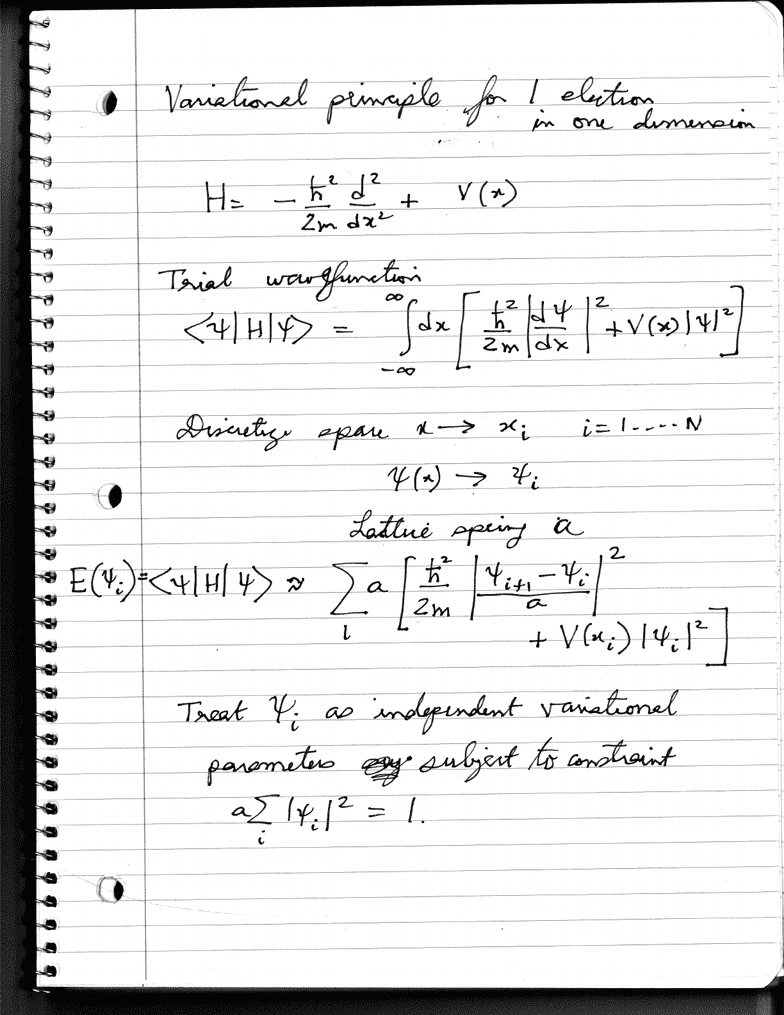 Variational principle for 1 electron
in one dimension
H = - ħ²/2m d²/dx² + V(x)
Trial wavefunction
<ψ|H|ψ> = ∫_{-∞}^{∞} dx [ ħ²/2m |dψ/dx|² + V(x)|ψ|² ]
Discretize space x → x_i i = 1....N
ψ(x) → ψ_i
Lattice spacing a
E(ψ_i) = <ψ|H|ψ> ≈ ∑_i a [ ħ²/2m |(ψ_{i+1} - ψ_i)/a|²
+ V(x_i) |ψ_i|² ]
Treat ψ_i as independent variational
parameters subject to constraint
a∑_i |ψ_i|² = 1.